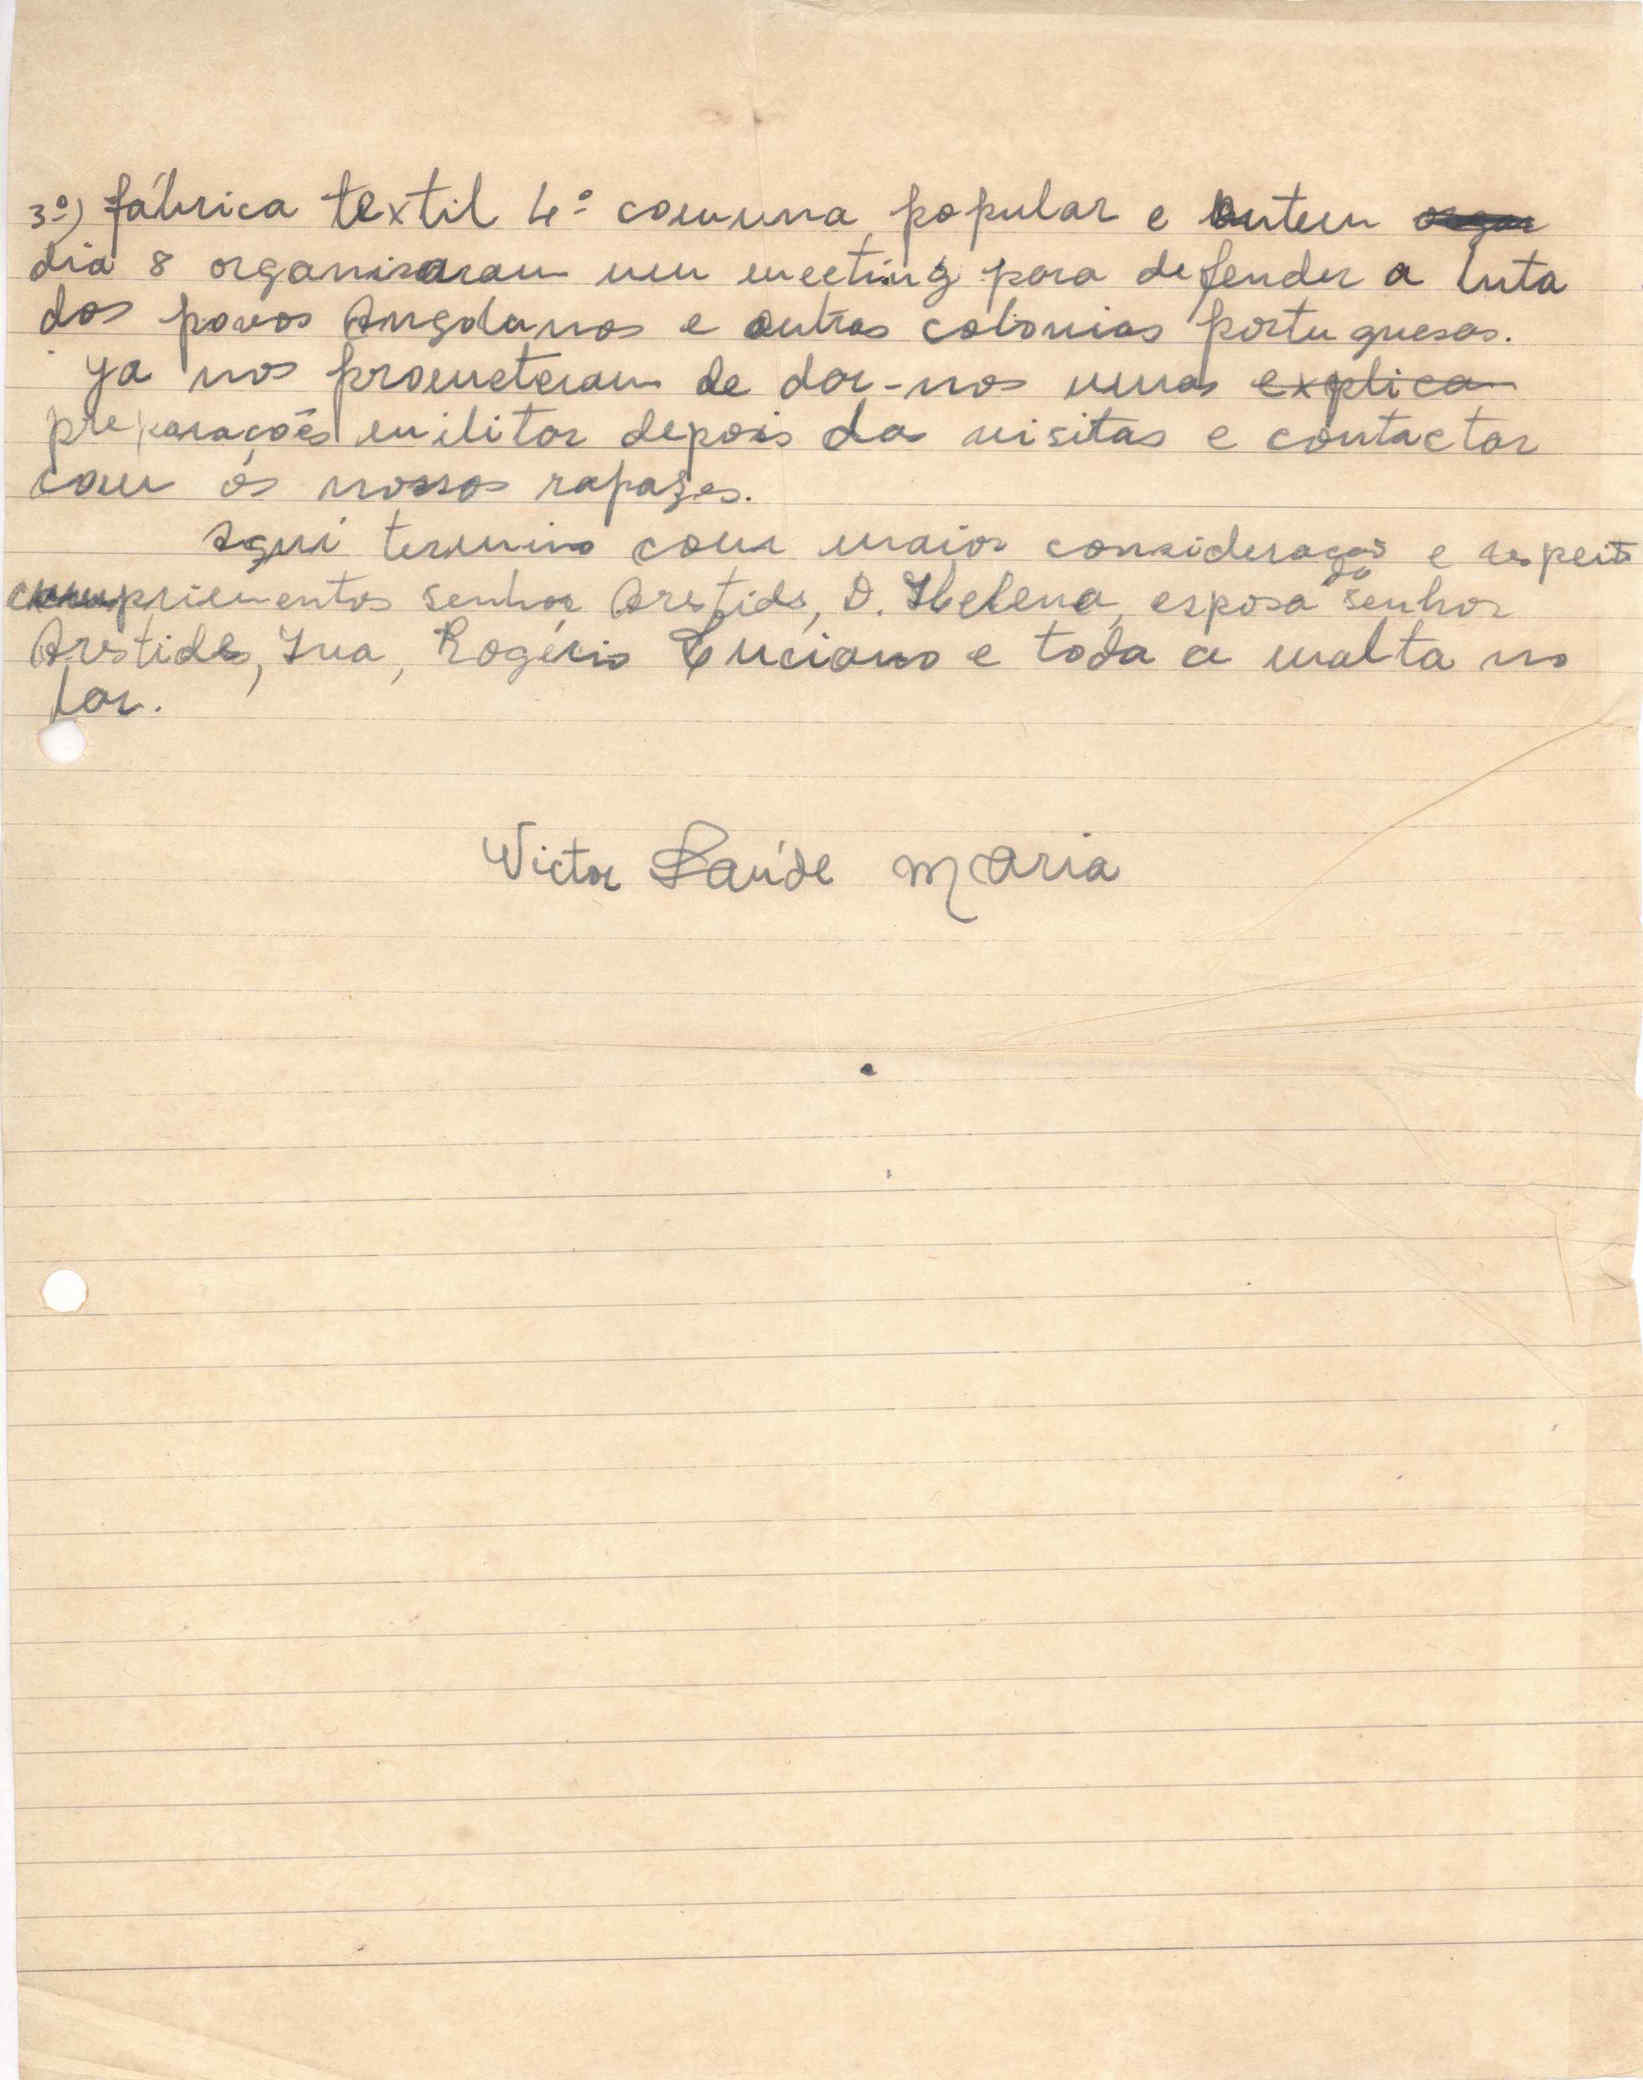 3º) fábrica textil 4º comuna popular e ontem
dia 8 organisaram um meeting para defender a luta
dos povos Angolanos e outras colonias portuguesas.
Ya nos prometeram de dar-nos umas explica
preparaçoẽs militar depois da visitas e contactar
com ós nossos rapazes.
Aqui termino com maior consideração e respeito
cumprimentos senhor Arestides, D. Helena, esposa do senhor
Arestides, Iva, Rogério Luciano e toda a malta no
lar.
Victor Saúde Maria